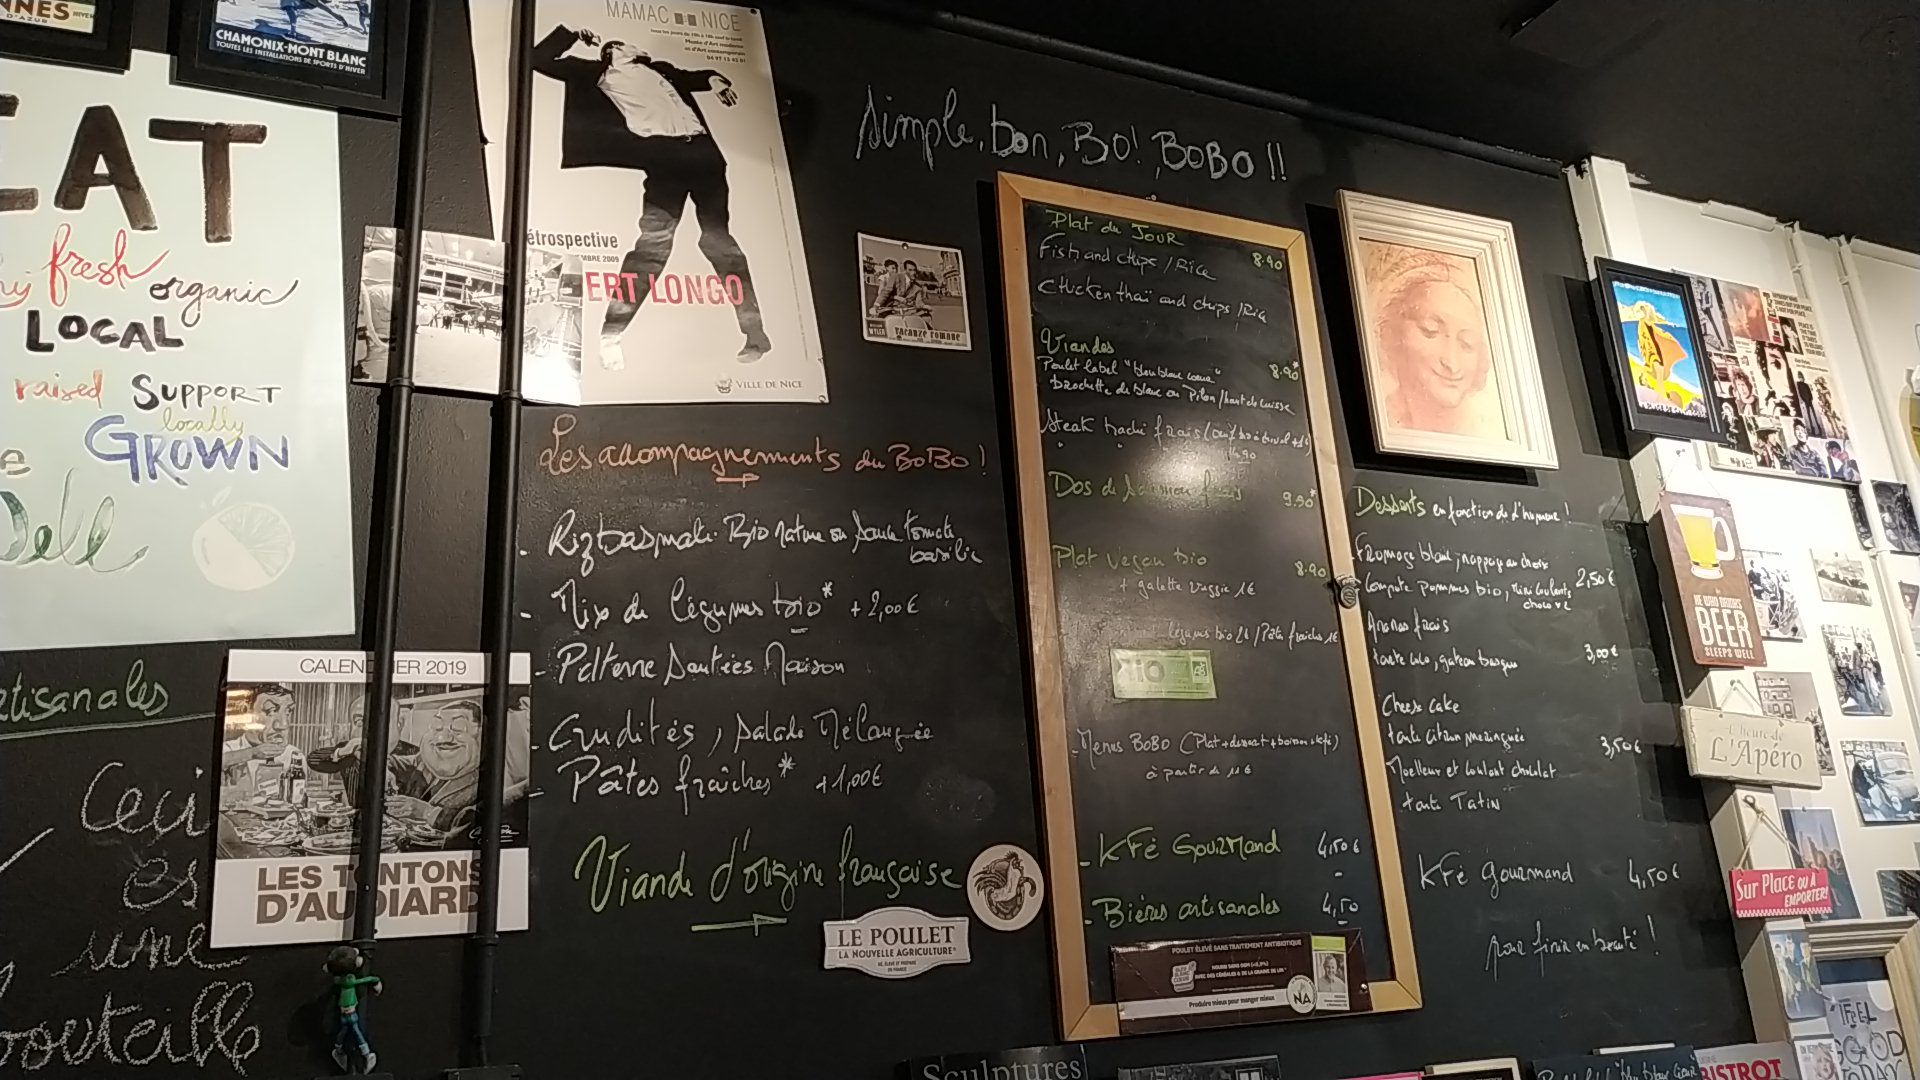 NNES
D'AZUR
CHAMONIX-MONT BLANC
TOUTES LES INSTALLATIONS DE SPORTS D'HIVER
EAT
fresh
organic
LOCAL
raised SUPPORT
locally
GROWN
MAMAC NICE
Musée d'Art moderne
et d'Art contemporain
étrospective
MBRE 2009
ERT LONGO
VILLE DE NICE
VACANZE ROMANE
Simple, bon, BO! BOBO !!
Les accompagnements du BoBo !
- Riz basmati Bio nature ou Sauce tomate
basilic
- Mix de légumes bio* + 2,00€
- PdTerre Sautées Maison
- Crudités, Salade Mélangée
- Pâtes fraîches* +1,00€
Viande d'origine française
LE POULET
LA NOUVELLE AGRICULTURE
Plat du JOUR
Fish and chips / Rice 8.90
Chicken thaï and chips / Rice
Viandes
Poulet label "bleu blanc coeur" 8.90*
Brochette de blanc ou Pilon / haut de cuisse
Steak haché frais
14.90
Dos de Saumon frais 9.90*
Plat Vegan bio 8.90
+ galette veggie 1€
légumes bio 2€ / Pâtes fraîches 1€
BIO
AB
- Menus BOBO (Plat + dessert + boisson + kfé)
à partir de 11€
- KFé GOURMAND 4,50€
- Bières artisanales 4,50
POULET ÉLEVÉ SANS TRAITEMENT ANTIBIOTIQUE
NOURRI SANS OGM (<0,9%)
AVEC DES CÉRÉALES & DE LA GRAINE DE LIN
Produire mieux pour manger mieux
NA
Desserts en fonction de l'humeur !
- Fromage blanc, nappage au choix
- Compote pommes bio, Mini coulants 2,50€
choco x 2
Ananas frais
tarte coco, gateau basque 3,00€
Cheese cake
tarte citron meringuée 3,50€
Moelleux et coulant chocolat
tarte Tatin
KFé Gourmand 4,50€
pour finir en beauté !
HE WHO DRINKS
BEER
SLEEPS WELL
L'heure de
L'Apéro
Sur Place OU À
EMPORTER!
artisanales
CALENDRIER 2019
LES TONTONS
D'AUDIARD
Ceci
es
une
bouteille
Sculptures
BISTROT
FEEL
GOOD
TODAY